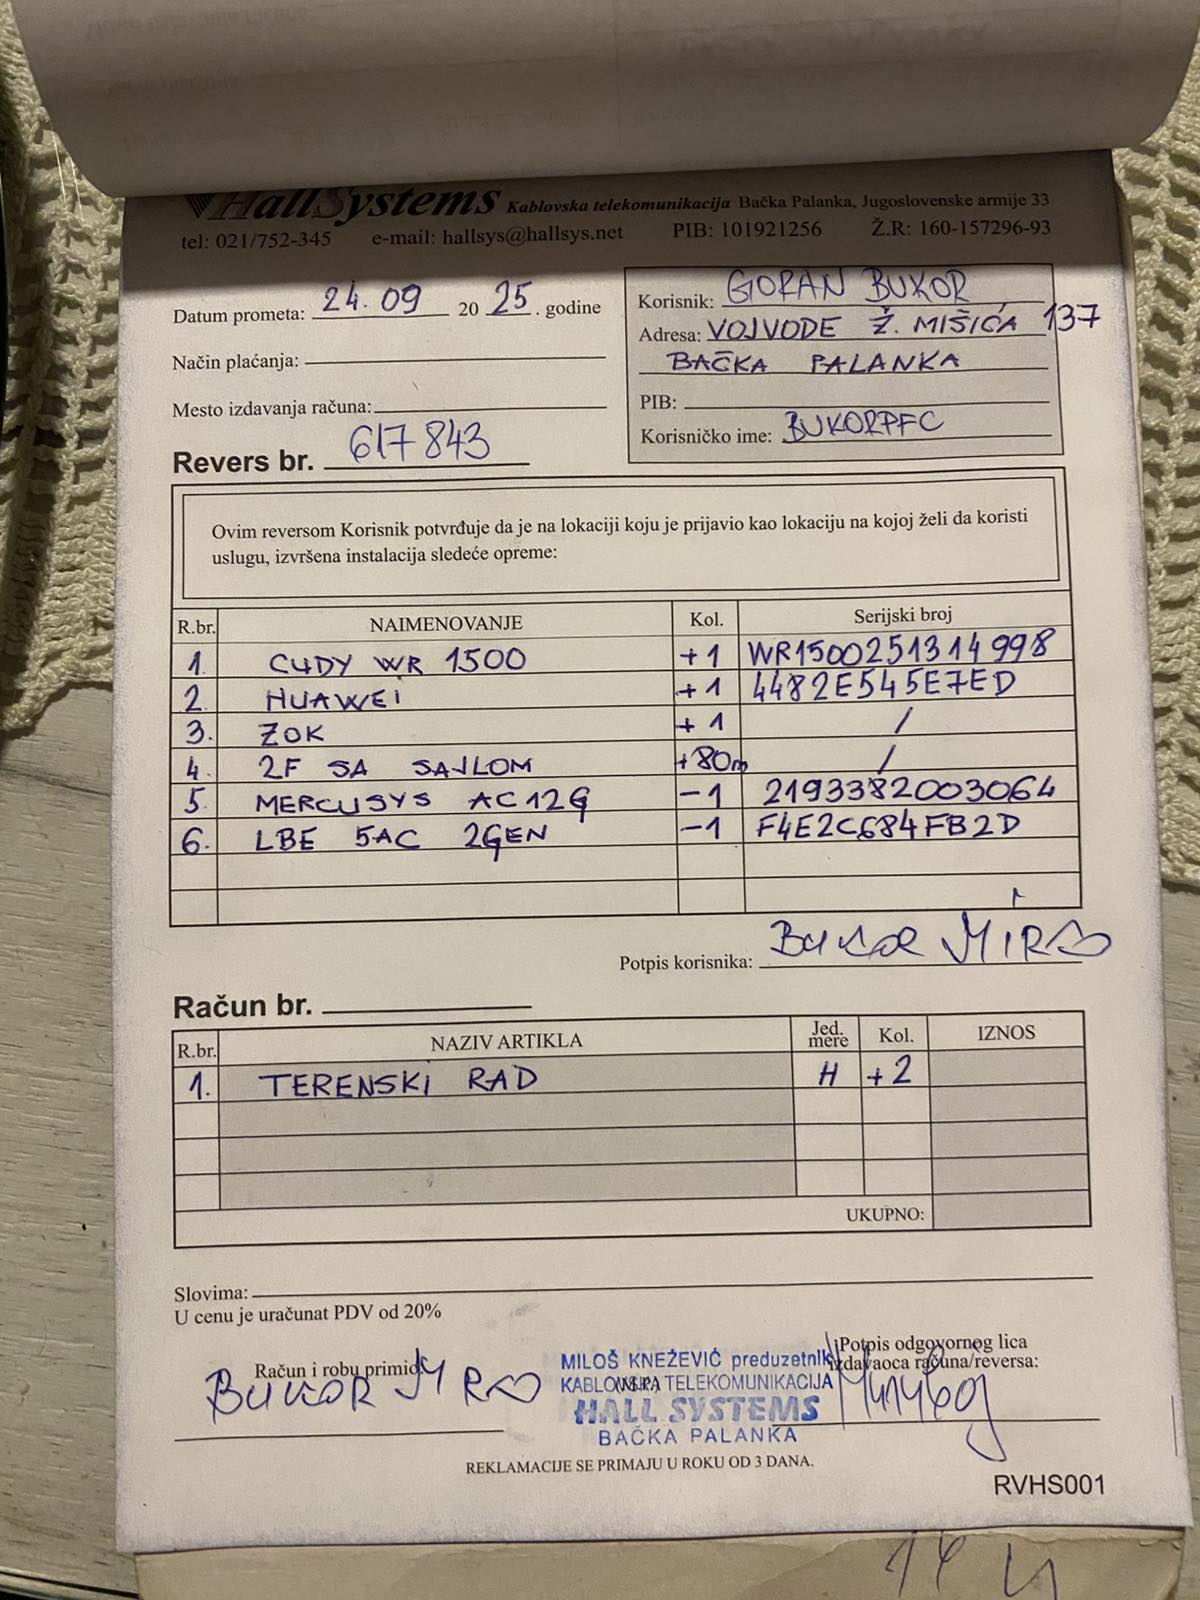 HallSystems Kablovska telekomunikacija Bačka Palanka, Jugoslovenske armije 33
tel: 021/752-345 e-mail: hallsys@hallsys.net PIB: 101921256 Ž.R: 160-157296-93
Datum prometa: 24.09 20 25. godine
Način plaćanja:
Mesto izdavanja računa:
Revers br. 617843
Korisnik: GORAN BUKOR
Adresa: VOJVODE Ž. MIŠIĆA 137
BAČKA PALANKA
PIB:
Korisničko ime: BUKORPFC
Ovim reversom Korisnik potvrđuje da je na lokaciji koju je prijavio kao lokaciju na kojoj želi da koristi
uslugu, izvršena instalacija sledeće opreme:
R.br. NAIMENOVANJE Kol. Serijski broj
1. CUDY WR 1500 +1 WR1500251314998
2. HUAWEI +1 4482E545E7ED
3. ZOK +1 /
4. 2F SA SAJLOM +80m /
5. MERCUSYS AC12G -1 2193382003064
6. LBE 5AC 2GEN -1 F4E2C684FB2D
Potpis korisnika: BUKOR MIRO
Račun br.
R.br. NAZIV ARTIKLA Jed. mere Kol. IZNOS
1. TERENSKI RAD H +2
UKUPNO:
Slovima:
U cenu je uračunat PDV od 20%
Račun i robu primio:
BUKOR MIRO
MILOŠ KNEŽEVIĆ preduzetnik
KABLOVSKA TELEKOMUNIKACIJA
HALL SYSTEMS
BAČKA PALANKA
Potpis odgovornog lica
izdavaoca računa/reversa:
REKLAMACIJE SE PRIMAJU U ROKU OD 3 DANA.
RVHS001